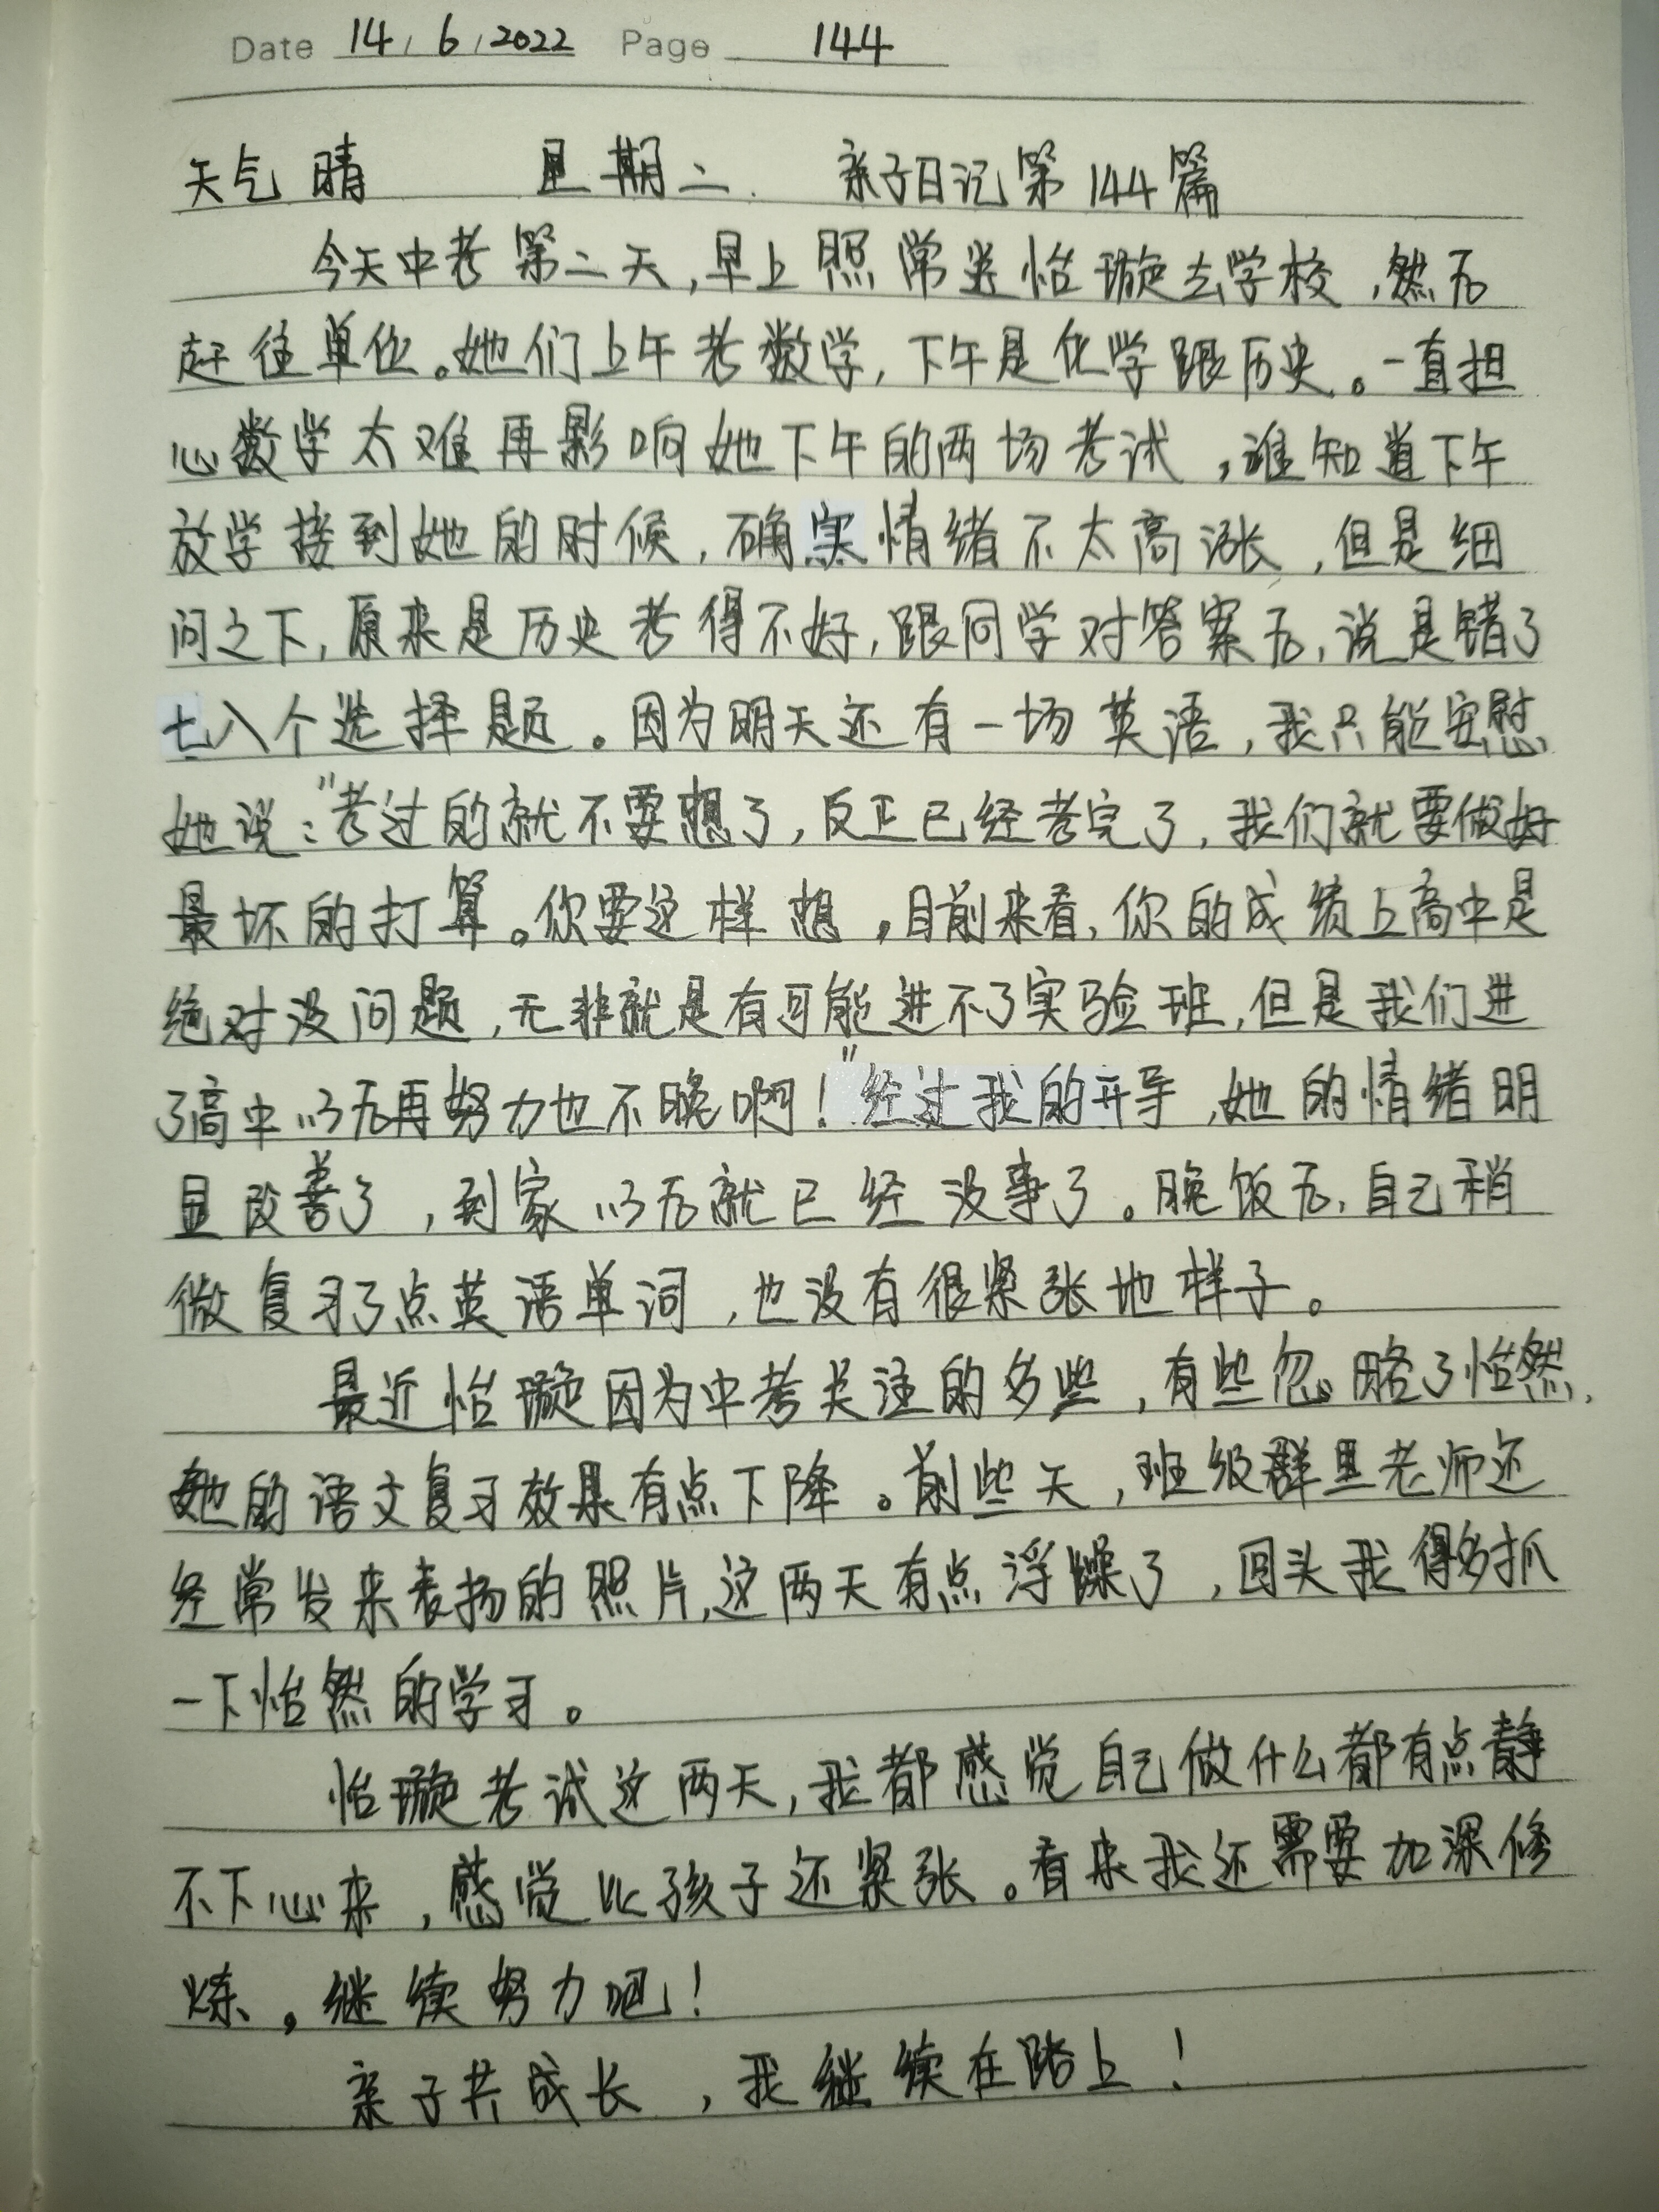 Date 14/6/2022 Page 144
天气 晴 星期二 亲子日记第144篇
今天中考第二天,早上照常送怡璇去学校,然后
赶往单位。她们上午考数学,下午是化学跟历史。一直担
心数学太难再影响她下午的两场考试,谁知道下午
放学接到她的时候,确实情绪不太高涨,但是细
问之下,原来是历史考得不好,跟同学对答案后,说是错了
七八个选择题。因为明天还有一场英语,我只能安慰
她说:"考过的就不要想了,反正已经考完了,我们就要做好
最坏的打算。你要这样想,目前来看,你的成绩上高中是
绝对没问题,无非就是有可能进不了实验班,但是我们进
了高中以后再努力也不晚啊!"经过我的开导,她的情绪明
显改善了,到家以后就已经没事了。晚饭后,自己稍
微复习了点英语单词,也没有很紧张地样子。
最近怡璇因为中考关注的多些,有些忽略了怡然,
她的语文复习效果有点下降。前些天,班级群里老师还
经常发来表扬的照片,这两天有点浮躁了,回头我得多抓
一下怡然的学习。
怡璇考试这两天,我都感觉自己做什么都有点静
不下心来,感觉比孩子还紧张。看来我还需要加深修
炼。继续努力吧!
亲子共成长,我继续在路上!